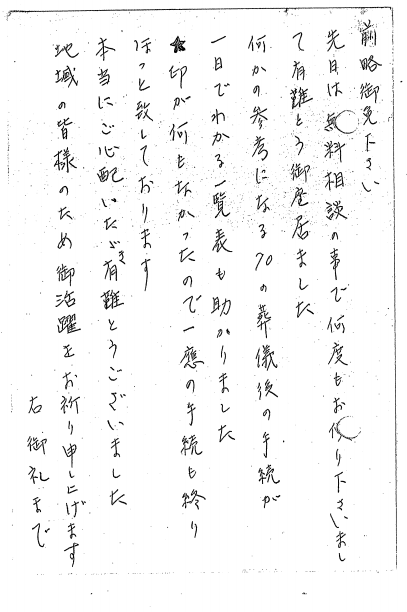 前略御免下さい
先日は無料相談の事で何度もお作り下さいまし
て有難とう御座居ました
何かの参考になる70の葬儀後の手続が
一目でわかる一覧表も助かりました
★印が何もなかったので一應の手続も終り
ほっと致しております
本当にご心配いただき有難とうございました
地域の皆様のため御活躍をお祈り申し上げます
右御礼まで